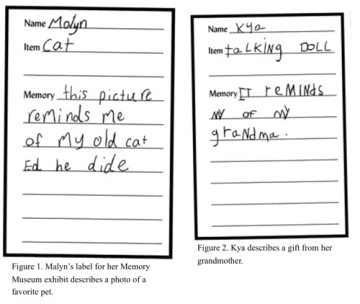 Name Malyn
Item Cat
Memory this picture
reminds me
of My old cat
Ed he dide
Figure 1. Malyn's label for her Memory
Museum exhibit describes a photo of a
favorite pet.
Name Kya
Item talKiNg DOLL
Memory IT reMINds
MY OF MY
graNdma.
Figure 2. Kya describes a gift from her
grandmother.